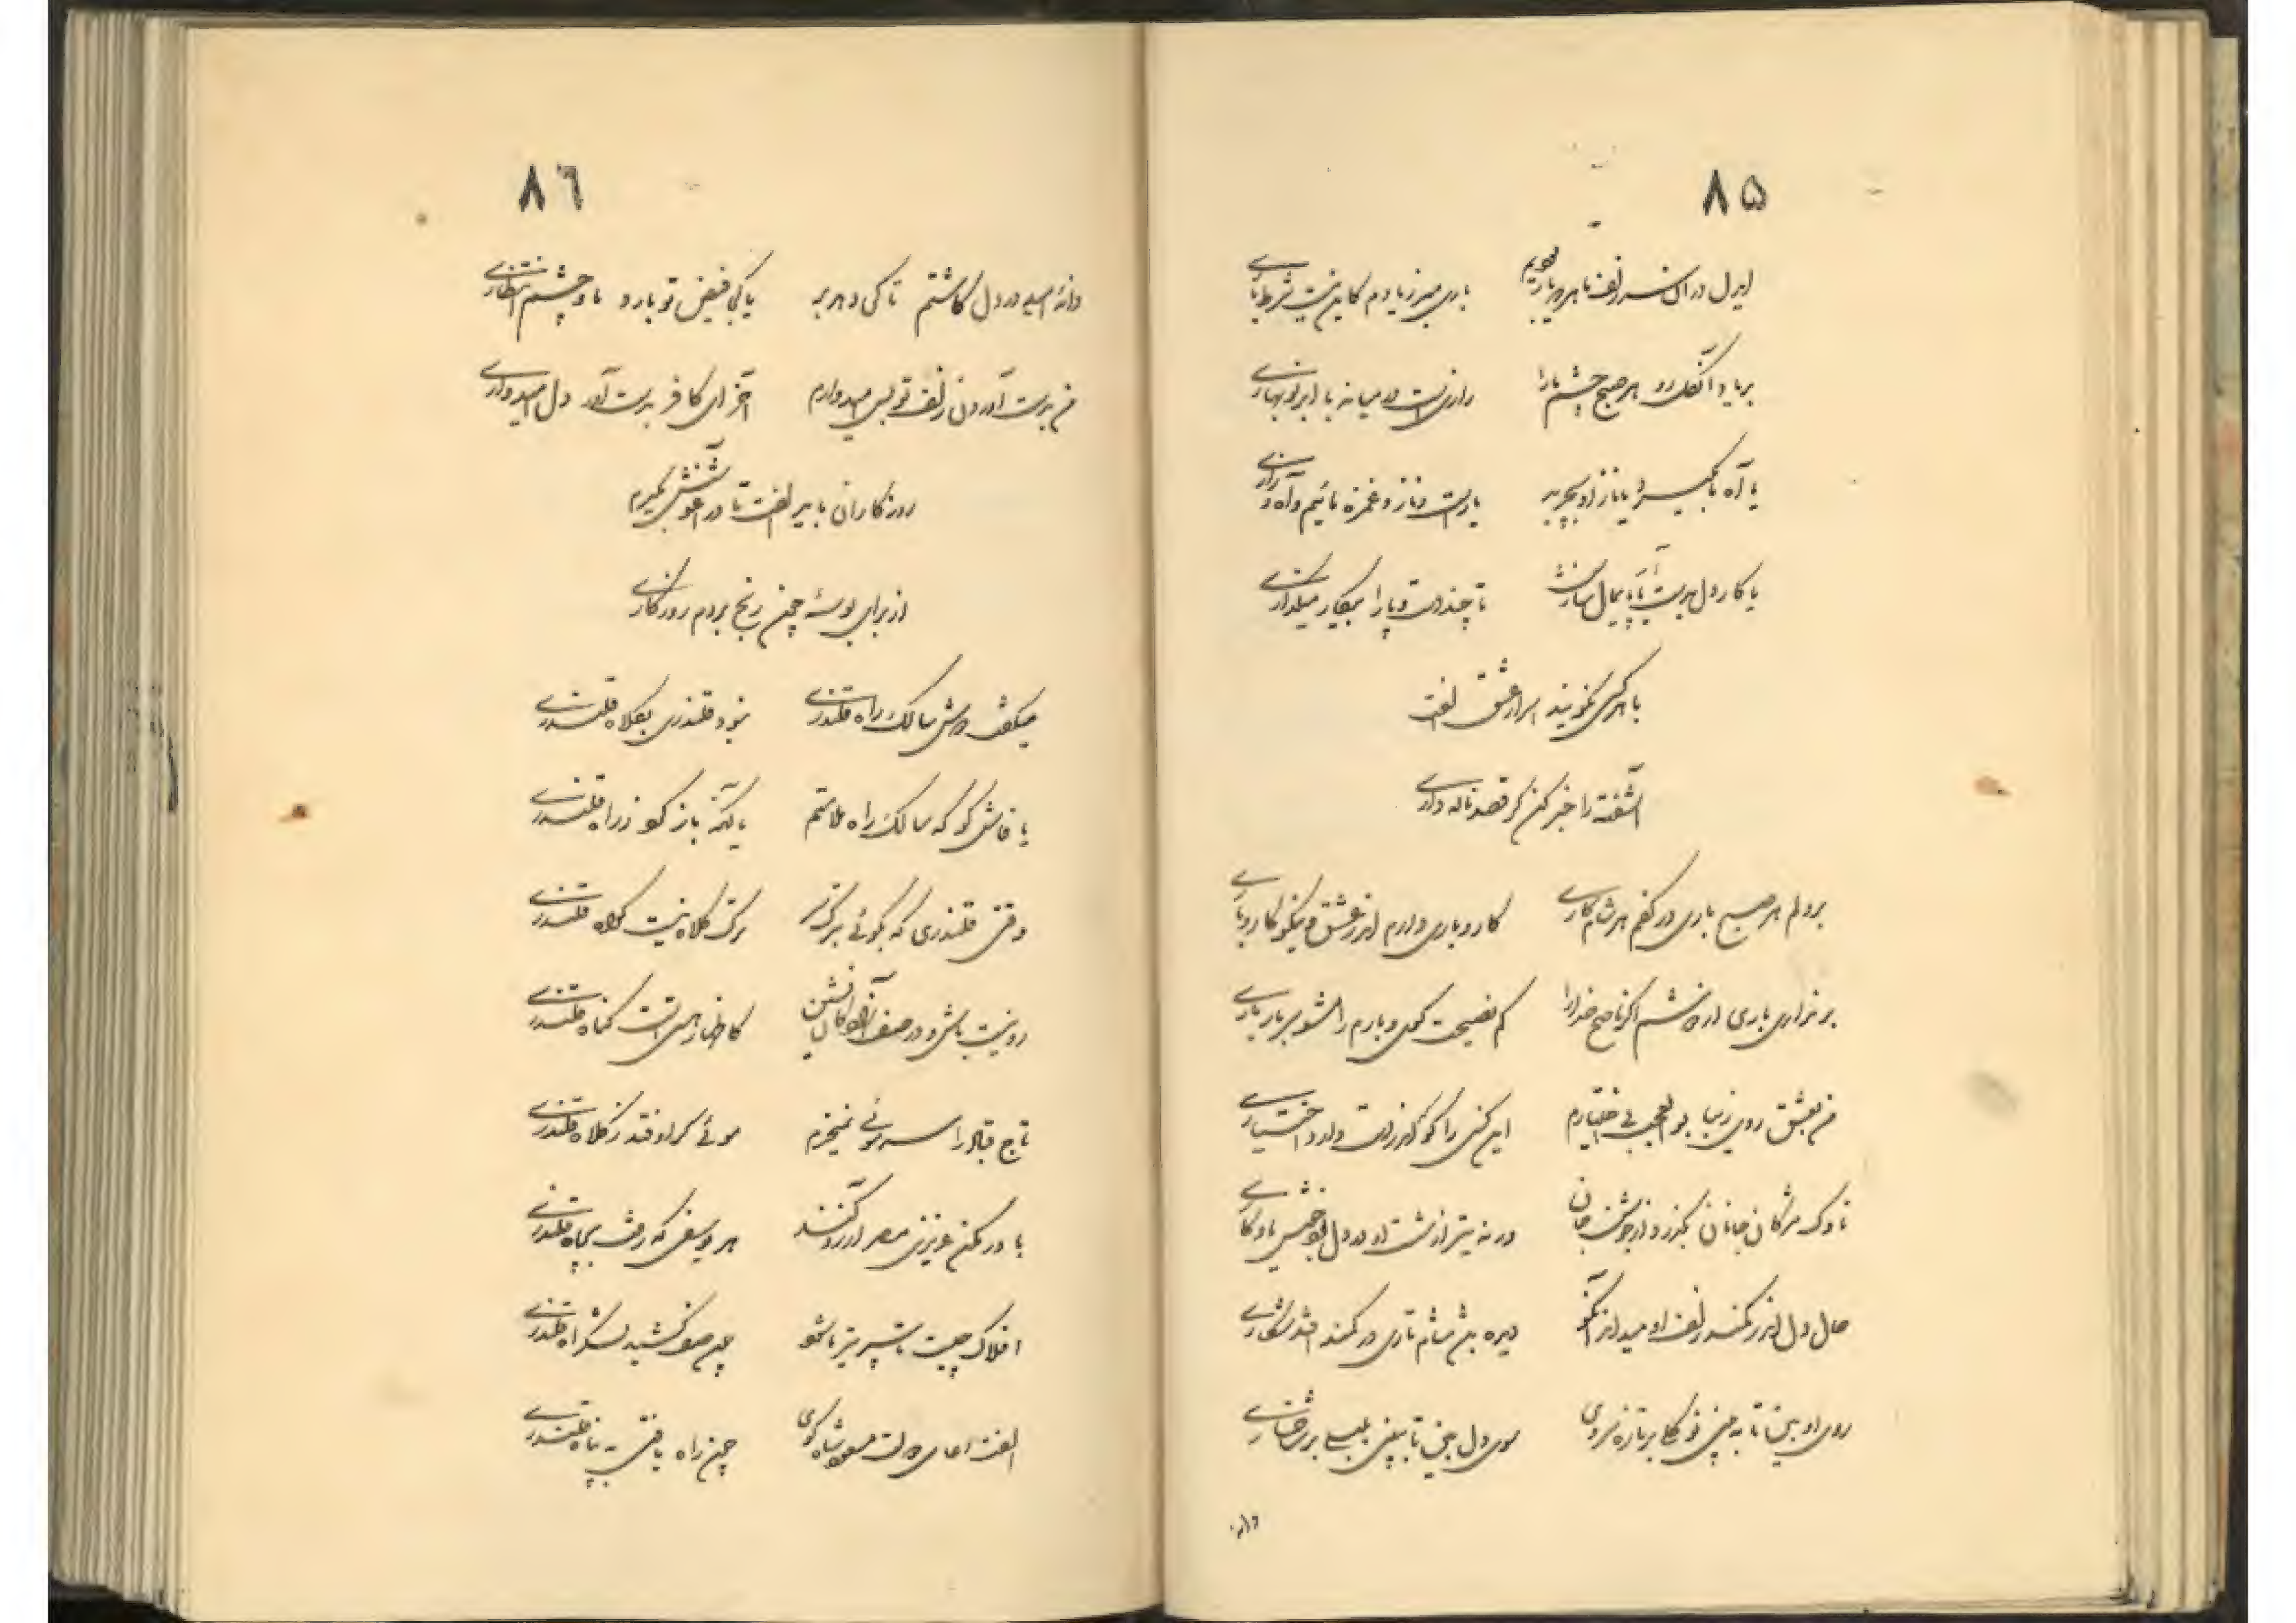 ۸۵
ایدل در آن سر زلف ما هر دو یار بودیم یاری مبر ز یادم کاین نیست شرط یاری
بر یاد آن گل رو هر صبح چشم ما را رازی است در میانه با ابر نوبهاری
با آه باز او یار است و ناز و غمزه مائیم و آه و زاری
یا کار دل بدست آر یا پایمال سازش تا چند دست و پا را بیکار میگذاری
با هر کسی نگویند اسرار عشق الفت
آشفته را خبر کن گر قصد ناله داری
بر دلم هر صبح باری در کفم هر شام کاری کار و باری دارم اندر عشق و نیکو کار و باری
بر نداری باری از دوشم اگر ناصح خدا را کم نصیحت کن دوبارم را مشو سربار باری
من بعشق روی زیبا بوالعجب بی اختیارم این کسی را کو که اندر دست دارد اختیاری
ناوک مژگان جانان بگذرد از جوشن جان ورنه تیر از شست او در دل
حال دل اندر کمند زلف او میداند آنکو دیده باشد شام تاری در کمند افتد شکاری
روی او بین تا به بینی نوگلی بر تازه سروی سوی دل بین تا ببینی بلبلی بر شاخساری
دانه
۸۶
دانهٔ امید در دل کاشتم تا کی دهد بر یا کی فیض تو بارد ما و چشم انتظاری
من بدست آوردن زلف تو بس امیدوارم آخر ای کافر بدست آور دل امیدواری
روزگاران باید الفت تا در آغوشش بگیرم
از برای بوسهٔ چون رنج بردم روزگاری
میگفت دوش سالک راه قلندری نبود قلندری بکلاه قلندری
یا فاش گو که سالک راه ملامتم یا نکته باز گو ز راه قلندری
دقتی قلندری که بگوئی به ترک سر ترک کلاه نیست کلاه قلندری
رو نیست باش و در صف نشین کاظهار هستی است گناه قلندری
تاج قباد را به سر موئی نمیخرم موئی گر اوفتد ز کلاه قلندری
باور مکن عزیزی مصر آرزو کند هر یوسفی که رفت بچاه قلندری
افلاک چیست تا سپر تیر ما شود چون صف کشید لشکر آه قلندری
الفت دعای دولت معصومشاه گوی چون راه یافتی به پناه قلندری